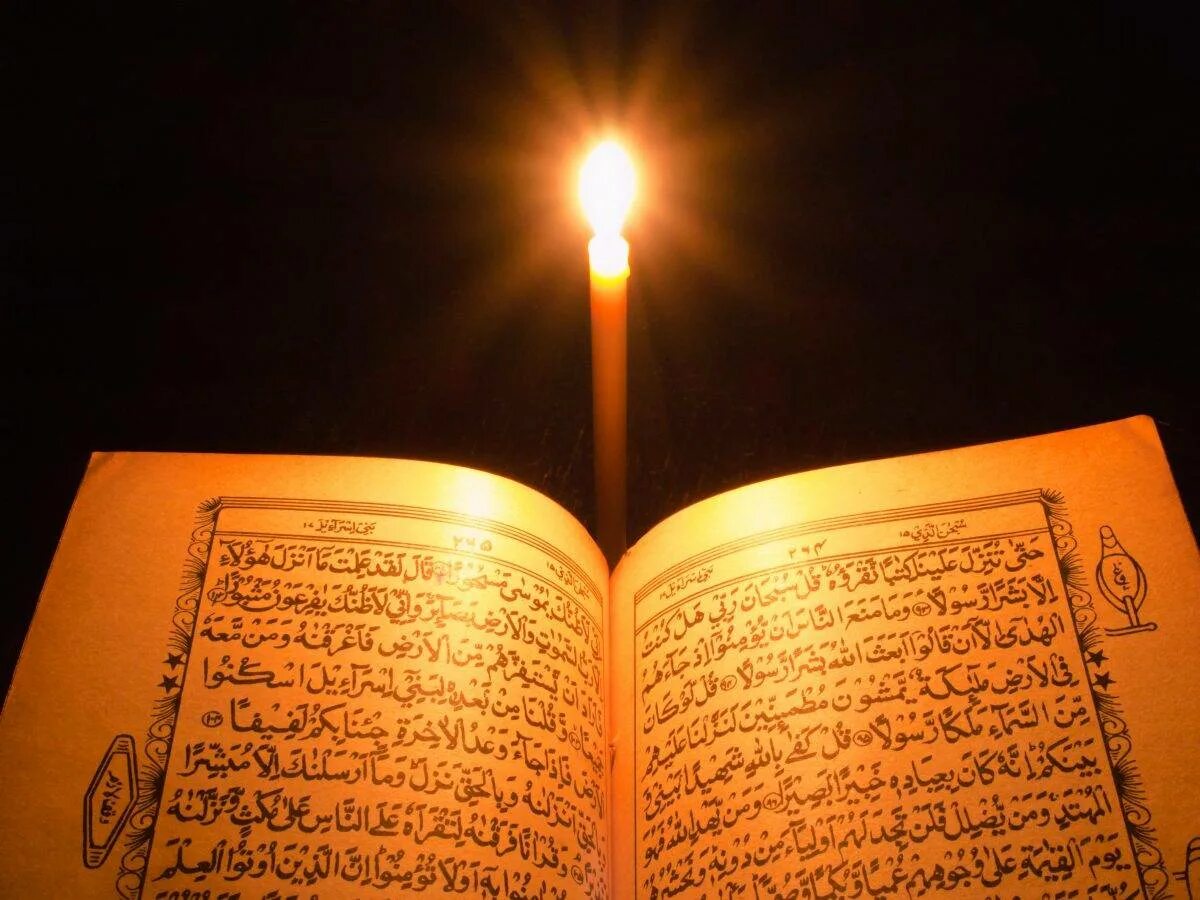 سُبْحٰنَ الَّذِيْ ١٥
٢٦٤
بَنِيْ اِسْرَآءِيْلَ ١٧
حَتّٰى تُنَزِّلَ عَلَيْنَا كِتٰبًا نَّقْرَؤُهٗ قُلْ سُبْحَانَ رَبِّيْ هَلْ كُنْتُ
اِلَّا بَشَرًا رَّسُوْلًا ۹۳ وَمَا مَنَعَ النَّاسَ اَنْ يُّؤْمِنُوْٓا اِذْ جَآءَهُمُ
الْهُدٰٓى اِلَّآ اَنْ قَالُوْٓا اَبَعَثَ اللّٰهُ بَشَرًا رَّسُوْلًا ۹۴ قُلْ لَّوْ كَانَ
فِى الْاَرْضِ مَلٰٓئِكَةٌ يَّمْشُوْنَ مُطْمَئِنِّيْنَ لَنَزَّلْنَا عَلَيْهِمْ
مِّنَ السَّمَآءِ مَلَكًا رَّسُوْلًا ۹۵ قُلْ كَفٰى بِاللّٰهِ شَهِيْدًۢا بَيْنِيْ وَ
بَيْنَكُمْ اِنَّهٗ كَانَ بِعِبَادِهٖ خَبِيْرًۢا بَصِيْرًا ۹۶ وَمَنْ يَّهْدِ اللّٰهُ فَهُوَ
الْمُهْتَدِ وَمَنْ يُّضْلِلْ فَلَنْ تَجِدَ لَهُمْ اَوْلِيَآءَ مِنْ دُوْنِهٖ وَنَحْشُرُهُمْ
يَوْمَ الْقِيٰمَةِ عَلٰى وُجُوْهِهِمْ عُمْيًا وَّبُكْمًا وَّصُمًّا
سُبْحٰنَ الَّذِيْ ١٥
٢٦٥
بَنِيْ اِسْرَآءِيْلَ ١٧
اِنِّيْ لَاَظُنُّكَ يٰمُوْسٰى مَسْحُوْرًا قَالَ لَقَدْ عَلِمْتَ مَآ اَنْزَلَ هٰٓؤُلَآءِ
السَّمٰوٰتِ وَالْاَرْضِ بَصَآئِرَ وَاِنِّيْ لَاَظُنُّكَ يٰفِرْعَوْنُ مَثْبُوْرًا ۱۰۲
اَنْ يَّسْتَفِزَّهُمْ مِّنَ الْاَرْضِ فَاَغْرَقْنٰهُ وَمَنْ مَّعَهٗ
وَّقُلْنَا مِنْۢ بَعْدِهٖ لِبَنِيْٓ اِسْرَآءِيْلَ اسْكُنُوا
الْاَرْضَ فَاِذَا جَآءَ وَعْدُ الْاٰخِرَةِ جِئْنَا بِكُمْ لَفِيْفًا ۱۰۴
وَبِالْحَقِّ اَنْزَلْنٰهُ وَبِالْحَقِّ نَزَلَ وَمَآ اَرْسَلْنٰكَ اِلَّا مُبَشِّرًا
وَقُرْاٰنًا فَرَقْنٰهُ لِتَقْرَاَهٗ عَلَى النَّاسِ عَلٰى مُكْثٍ وَّنَزَّلْنٰهُ
اٰمِنُوْا بِهٖٓ اَوْ لَا تُؤْمِنُوْا اِنَّ الَّذِيْنَ اُوْتُوا الْعِلْمَ